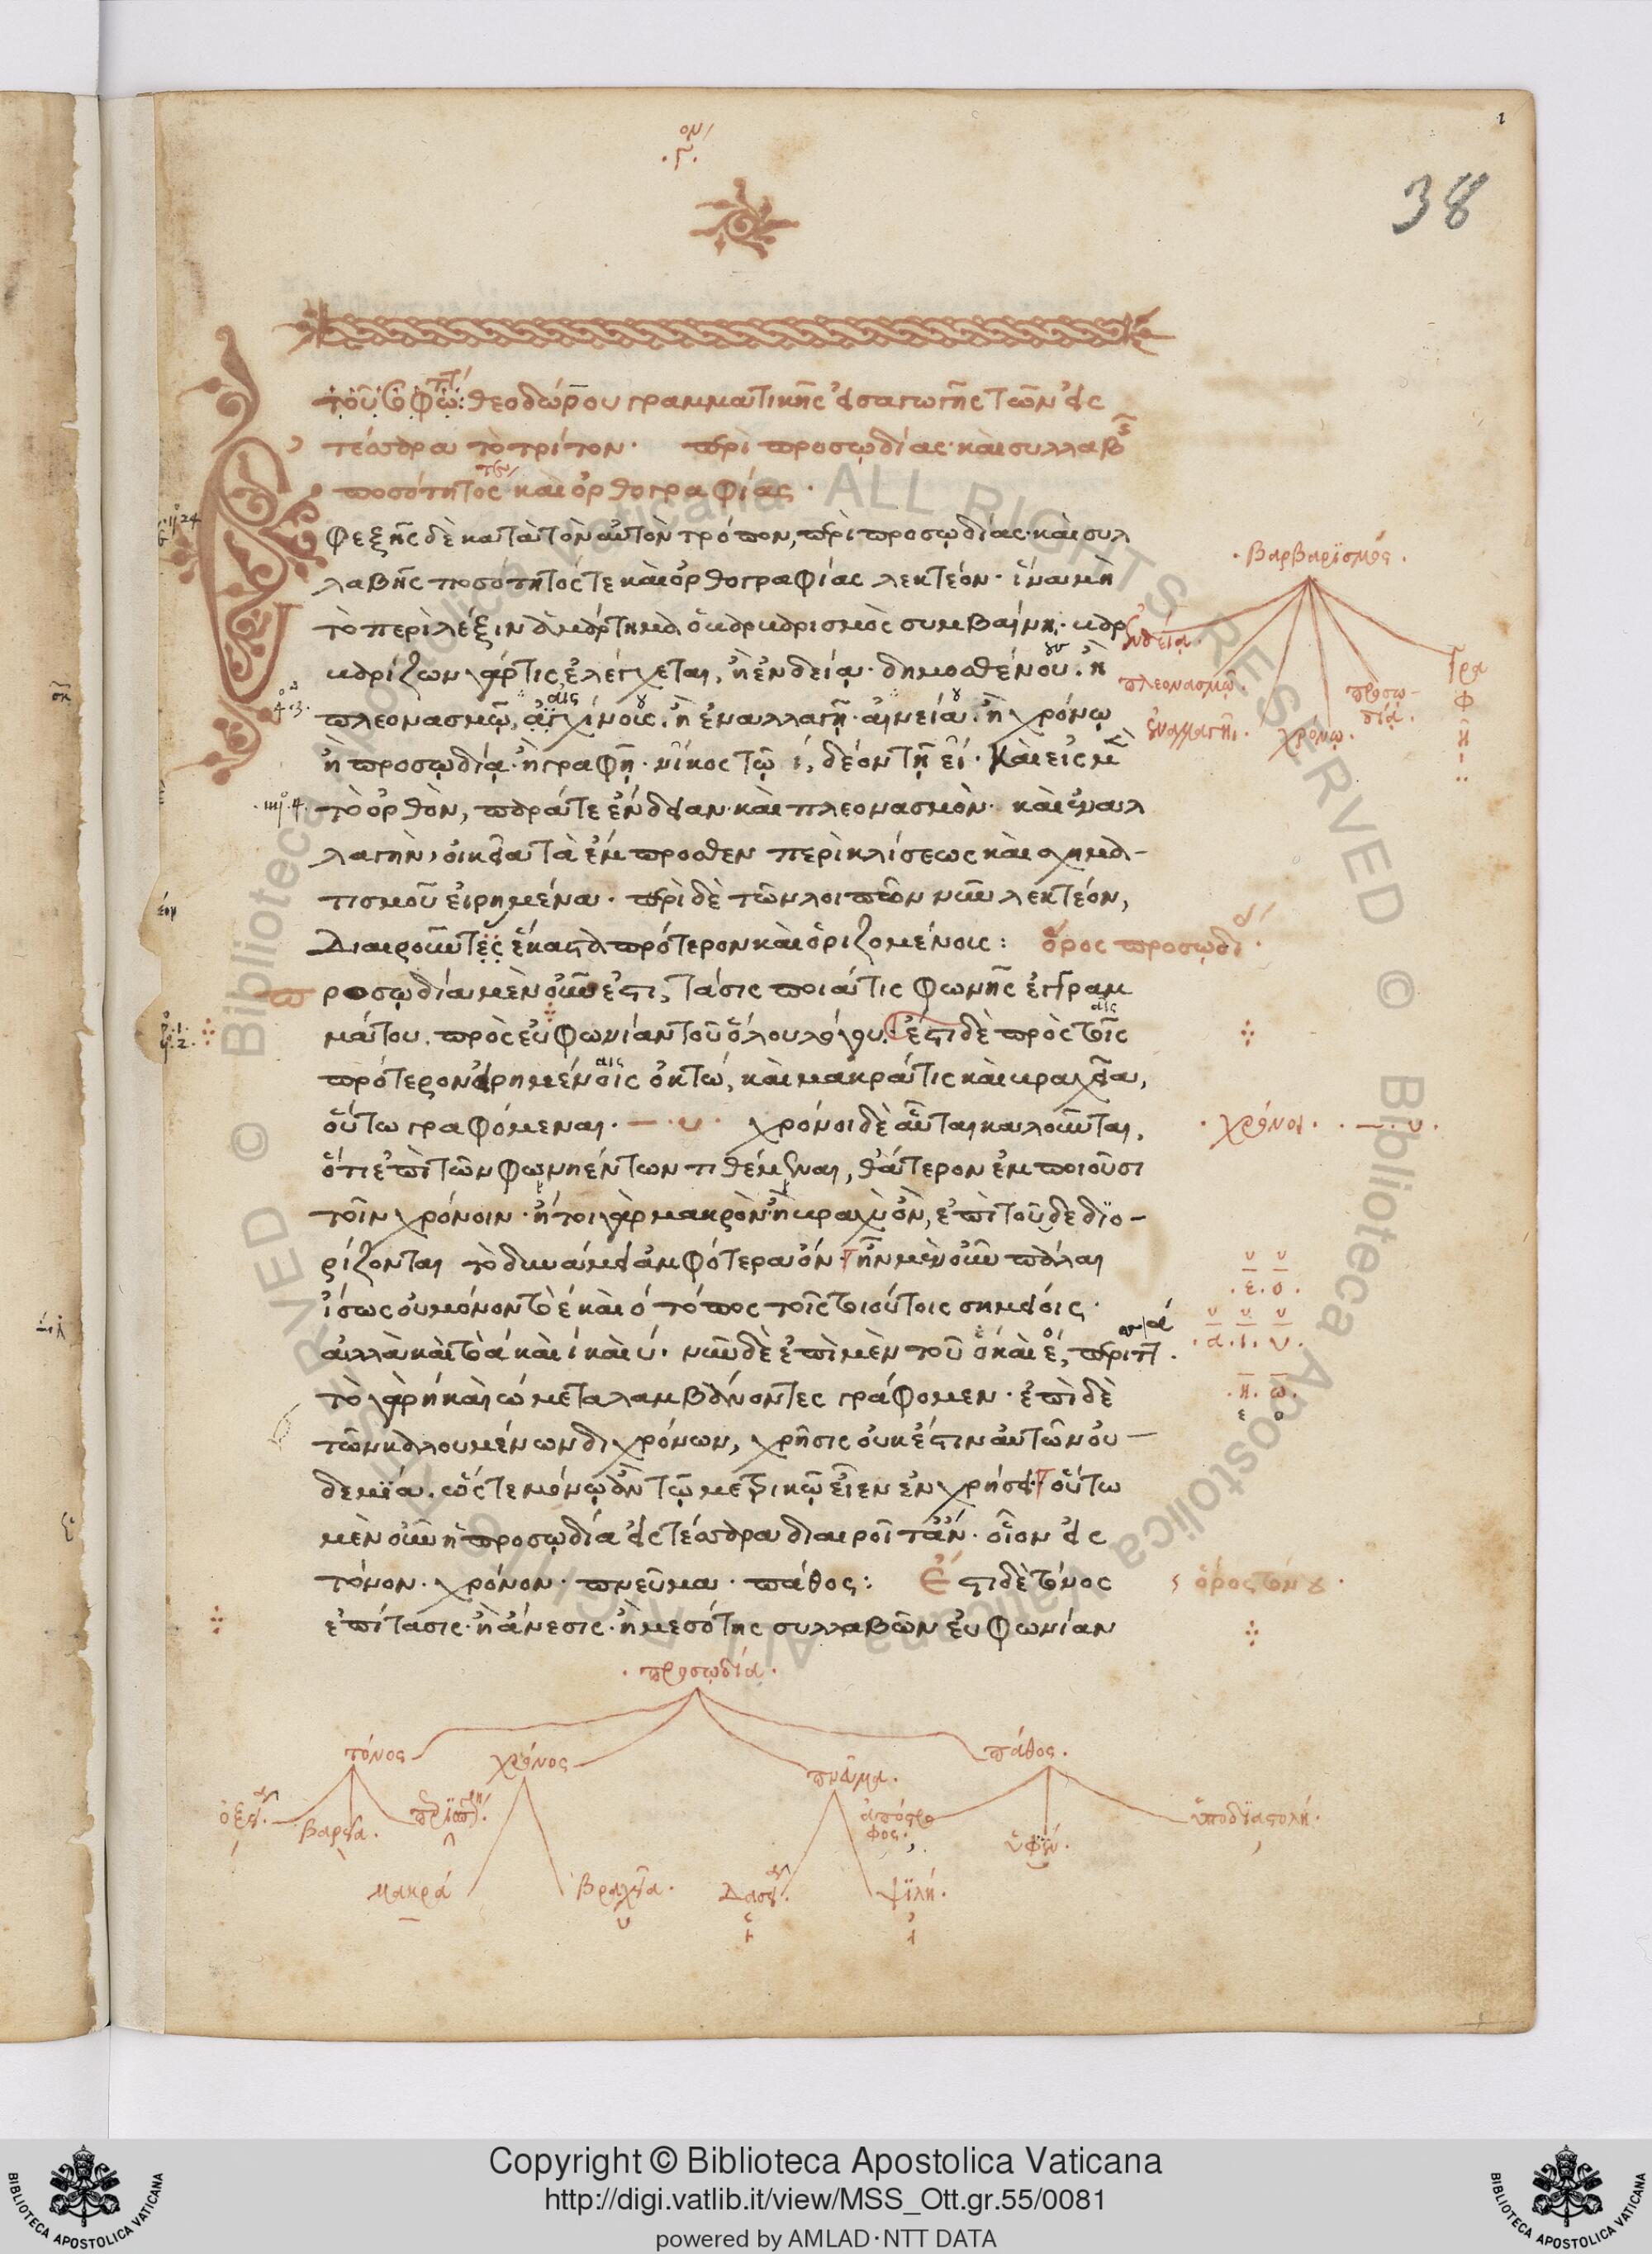 ον
·γ·
38
τοῦ σοφω: θεοδώρου γραμματικῆς εἰσαγωγῆς τῶν εἰς
τέσσαρα τὸ τρίτον· περὶ προσωδίας· καὶ συλλαβῆς
ποσότητος καὶ ὀρθογραφίας·
φεξῆς δὲ κατὰ τὸν αὐτὸν τρόπον, περὶ προσωδίας· καὶ συλ
λαβῆς ποσότητός τε καὶ ὀρθογραφίας λεκτέον· ἵνα μὴ
τὸ περὶ λέξιν ἁμάρτημα ὁ βαρβαρισμὸς συμβαίνη· βαρ
βαρίζων γάρ τις ἐλέγχεται, ἢ ἐνδεία· δημοσθένου· ἢ
πλεονασμῶ, ἀγχίνοις· ἢ ἐναλλαγῆ· αἰνείου· ἢ χρόνω
ἢ προσωδία· ἢ γραφῆ· νῖκος τῶ ι, δέον τῆ ει· Καὶ εἰς μὲν
τὸ ὀρθὸν, παρά τε ἔνδειαν· καὶ πλεονασμὸν· καὶ ἐναλ
λαγὴν, οἰκεῖα τὰ ἔμπροσθεν περὶ κλίσεως καὶ σχημα-
τισμοῦ εἰρημένα· περὶ δὲ τῶν λοιπῶν νῦν λεκτέον,
Διαιροῦντες ἕκαστα πρότερον καὶ ὁριζομένοις: ὅρος προσωδί
προσωδία μὲν οὖν ἐστι, τάσις ποιά τις φωνῆς ἐγγραμ
μάτου. πρὸς εὐφωνίαν τοῦ ὅλου λόγου. ἔστι δὲ πρὸς τοῖς αἷς
πρότερον εἰρημένοις αις ὀκτώ, καὶ μακρά τις καὶ βραχεῖα,
οὕτω γραφόμεναι· — · υ · χρόνοι δὲ αὗται καλοῦνται,
ὅτι ἐπὶ τῶν φωνηέντων τιθέμεναι, θάτερον ἐμποιοῦσι
τοῖν χρόνοιν· ἤτοι γὰρ μακρὸν ἢ βραχὺ ὂν, ἐπὶ τοῦδε διο-
ρίζονται τὸ δυνάμει ἀμφότερα ὄν· ἦν μὲν οὖν πάλαι
ἴσως οὐ μόνον τὸ ε καὶ ο τόπος τοῖς τοιούτοις σημείοις·
ἀλλὰ καὶ τὸ α καὶ ι καὶ υ· νῦν δὲ ἐπὶ μὲν τοῦ ο καὶ ε, περιττ·
τὸ γὰρ η καὶ ω μεταλαμβάνοντες γράφομεν· ἐπὶ δὲ
τῶν καλουμένων διχρόνων, χρῆσις οὐκ ἔστιν αὐτῶν οὐ—
δεμία. ὥστε μόνω ἂν τῶ μετρικῶ εἶεν ἐν χρήσει· οὕτω
μὲν οὖν ἡ προσωδία εἰς τέσσαρα διαιροῖτ' ἄν· οἷον εἰς
τόνον· χρόνον· πνεῦμα· πάθος: Ἔστι δὲ τόνος
ἐπίτασις· ἢ ἄνεσις· ἢ μεσότης συλλαβῶν εὐφωνίαν
·βαρβαρισμός·
ἐνδεία·
πλεονασμῶ·
ἐναλλαγῆ·
χρόνω·
προσω-
δία·
γρα
φ
ῆ
·χρόνοι· ·—·υ·
·ε·ο·
·α·ι·υ·
·η·ω·
ε ο
ὅρος τόνου·
·προσωδία·
τόνος
χρόνος
πνεῦμα·
πάθος·
ὀξεῖα·
βαρεῖα·
περισπ·
μακρά
βραχεῖα·
Δασεῖα·
ψιλή·
ἀπόστρο
φος·
ὑφέν·
ὑποδιαστολή·
© Biblioteca Apostolica Vaticana ALL RIGHTS RESERVED
Copyright © Biblioteca Apostolica Vaticana
http://digi.vatlib.it/view/MSS_Ott.gr.55/0081
powered by AMLAD·NTT DATA
BIBLIOTECA APOSTOLICA VATICANA
BIBLIOTECA APOSTOLICA VATICANA